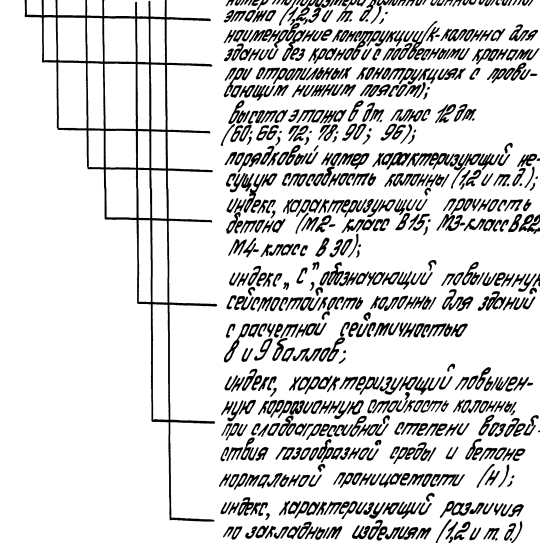 номер типоразмера колонны данной высоты
этажа (1,2,3 и т. д.);
наименование конструкции (К-колонна для
зданий без кранов и с подвесными кранами
при стропильных конструкциях с прови-
сающим нижним поясом);
высота этажа в дм. плюс 12 дм.
(60; 66; 72; 78; 90; 96);
порядковый номер характеризующий не-
сущую способность колонны (1,2 и т. д.);
индекс, характеризующий прочность
бетона (М2- класс В15; М3-класс В22,
М4-класс В 30);
индекс „С", обозначающий повышенную
сейсмостойкость колонны для зданий
с расчетной сейсмичностью
8 и 9 баллов;
индекс, характеризующий повышен-
ную коррозионную стойкость колонны,
при слабоагрессивной степени воздей-
ствия газообразной среды и бетоне
нормальной проницаемости (Н);
индекс, характеризующий различия
по закладным изделиям (1,2 и т. д.)